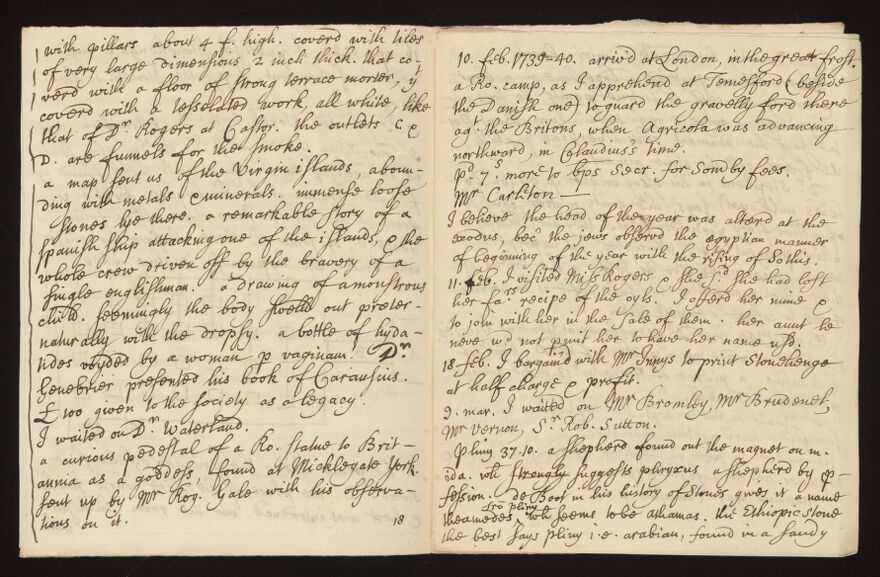 with pillars about 4 f. high. coverd with tiles
of very large dimensions, 2 inch thick. that co-
verd with a floor of strong terrace morter, yt
coverd with a tesselated work, all white, like
that of Dr. Rogers at Castor. the outlets C &
D. are funnels for the smoke.
a map sent us of the Virgin islands, aboun-
ding with metals & minerals. immense loose
stones lye there. a remarkable story of a
spanish ship attacking one of the islands, & the
whole crew driven off by the bravery of a
single englishman. a drawing of a monstrous
child. seemingly the body swelld out præter-
naturally with the dropsy. a bottle of hyda-
tides voyded by a woman p vaginam. Dr.
Genebrier presented his book of Carausius.
£ 100 given to the society as a legacy.
I waited on Dr. Waterland.
a curious pedestal of a Ro. statue to Brit-
annia as a goddess, found at Micklegate York.
sent up by Mr Rog. Gale with his observa-
tions on it.
18
10. feb. 1739-40. arriv'd at London, in the great frost.
a Ro. camp, as I apprehend at Temesford (beside
the Danish one) to guard the gravelly ford there
agt. the Britons, when Agricola was advancing
northward, in Claudius's time.
pd. 7s. more to bps Secr. for Somby fees.
Mr Carlton —
I believe the head of the year was alterd at the
exodus, bec. the jews observd the egyptian manner
of beginning of the year with the rising of Sothis.
11. feb. I visited Miss Rogers & she sd. she had lost
her fars. recipe of the oyls. I offerd her mine &
to join with her in the sale of them. her aunt
neve wd not pmit her to have her name usd.
18 feb. I bargaind with Mr Innys to print Stonehenge
at half charge & profit.
9. mar. I waited on Mr Bromley, Mr Brudenel,
Mr Vernon, Sr. Rob. Sutton.
Pliny 37.10. a shepherd found out the magnet on m.
ida. wh strongly suggests phryxus a shepherd by p-
fession. de Boot in his history of Stones gives it a name
fro pliny
theamedes, wh seems to be athamas. the Ethiopic stone
the best says pliny i.e. arabian, found in a sandy